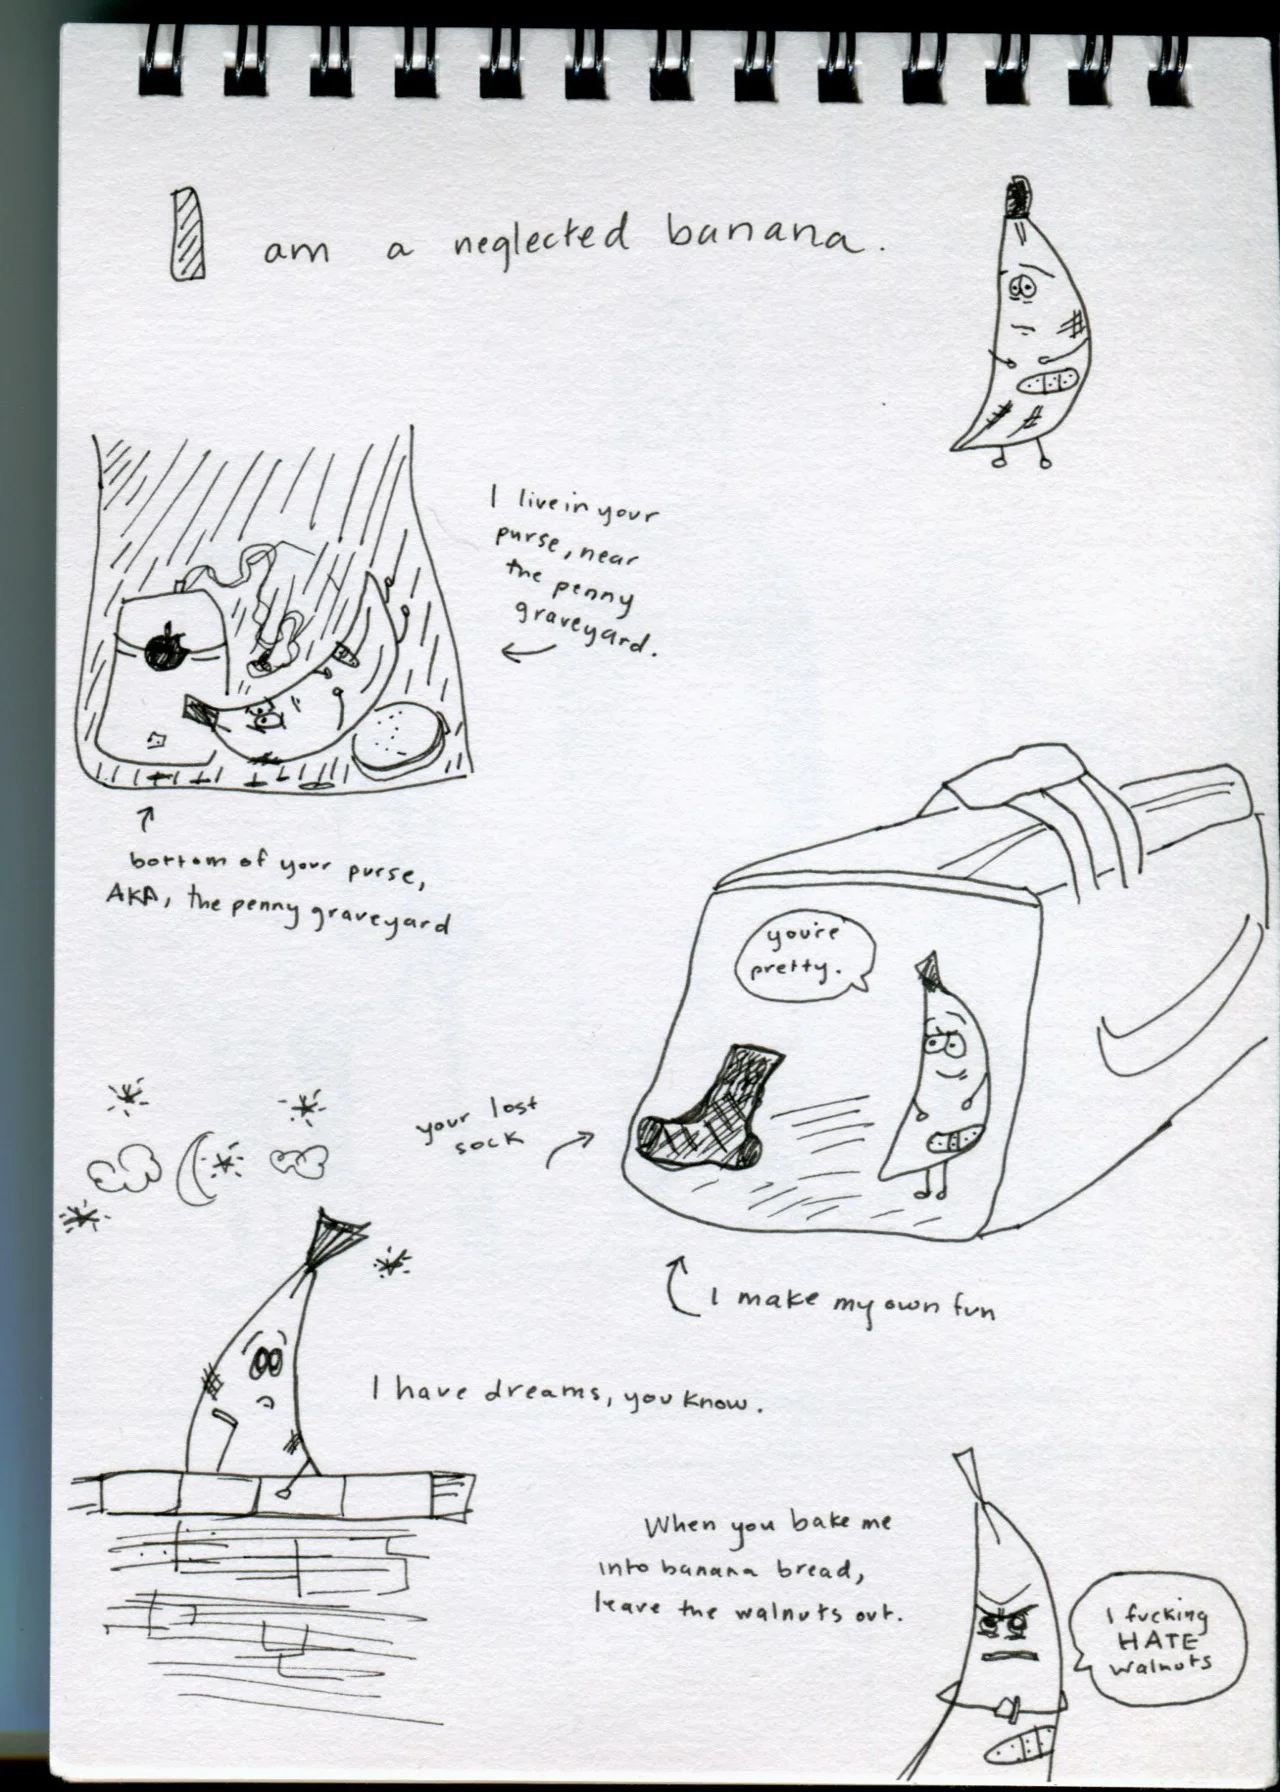 I am a neglected banana.
I live in your
purse, near
the penny
graveyard.
bottom of your purse,
AKA, the penny graveyard
you're
pretty.
your lost
sock
I make my own fun
I have dreams, you know.
When you bake me
into banana bread,
leave the walnuts out.
I fucking
HATE
walnuts